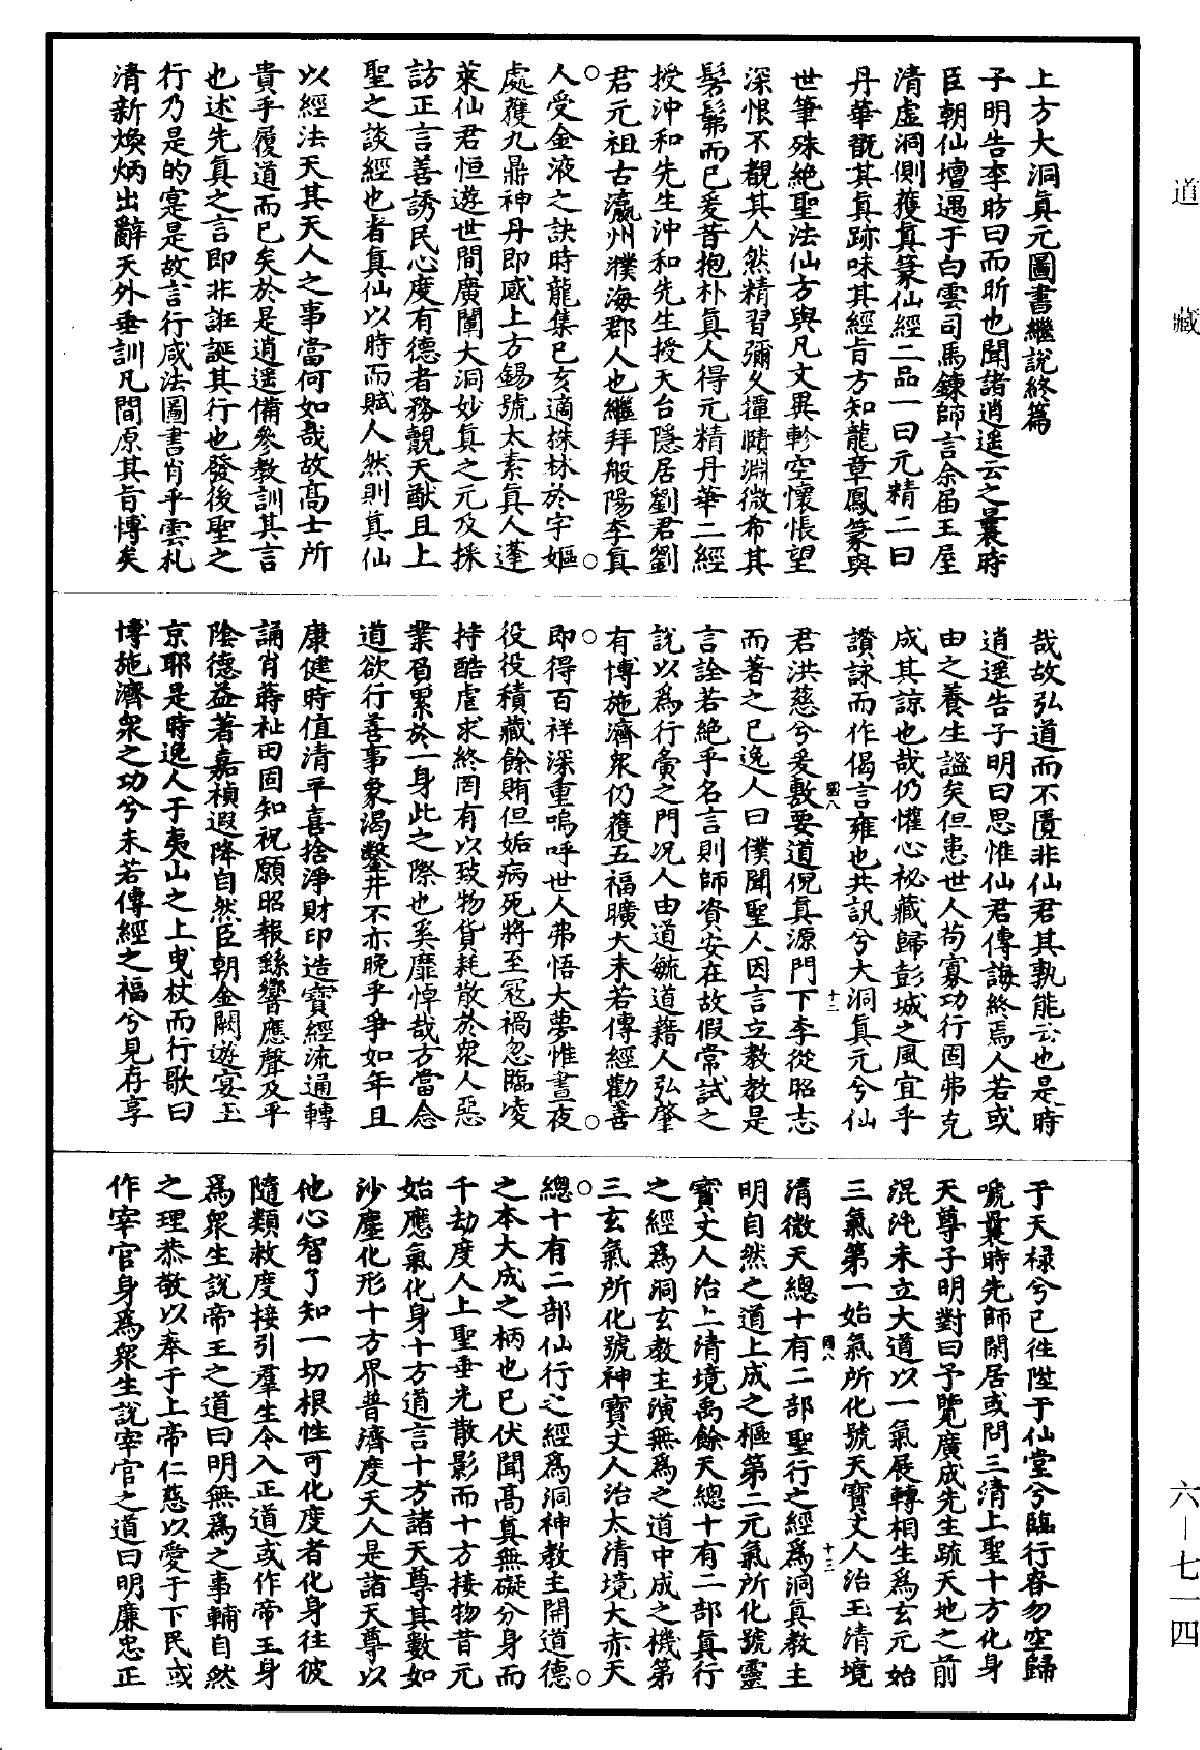 道藏
六—七一四
上方大洞真元圖書繼說終篇
子明告李昉曰而昕也聞諸逍遥云之曩時
臣朝仙壇遇于白雲司馬鍊師言余届王屋
清虛洞側獲真篆仙經二品一曰元精二曰
丹華翫其真跡味其經旨方知龍章鳳篆與
世筆殊絕聖法仙方與凡文異軫空懷悵望
深恨不覩其人然精習彌久撢賾淵微希其
髣髴而已爰昔抱朴真人得元精丹華二經
授沖和先生沖和先生授天台隱居劉君劉
君元祖古瀛州濮海郡人也繼拜般陽李真
人受金液之訣時龍集已亥適㭐林於宇嫗
處獲九鼎神丹即感上方錫號太素真人蓬
萊仙君恒遊世間廣闡大洞妙真之元及採
訪正言善誘民心度有德者務覿天猷且上
聖之談經也者真仙以時而賦人然則真仙
以經法天其天人之事當何如哉故高士所
貴乎履道而已矣於是逍遥備參教訓其言
也述先真之言即非誑誕其行也發後聖之
行乃是的寔是故言行咸法圖書肖乎雲札
清新煥炳出辭天外垂訓凡間原其旨博矣
哉故弘道而不匱非仙君其孰能云也是時
逍遥告子明曰思惟仙君傳誨終焉人若或
由之養生謐矣但患世人苟寡功行固弗克
成其諒也哉仍懽心祕藏歸彭城之風宜乎
讚詠而作偈言雍也共訊兮大洞真元兮仙
君洪慈兮爰敷要道俔真源門下李從昭志
而著之已逸人曰僕聞聖人因言立教教是
言詮若絕乎名言則師資安在故假常試之
說以為行彙之門况人由道毓道藉人弘肇
有博施濟衆仍獲五福曠大未若傳經勸善
即得百祥深重嗚呼世人弗悟大夢惟晝夜
役役積藏餘賄但姤病死將至寇禍忽臨凌
持酷虐求終罔有以致物貨耗散於衆人惡
業負累於一身此之際也奚靡悼哉方當念
道欲行善事象渴鑿井不亦晚乎爭如年且
康健時值清平喜捨淨財印造寶經流通轉
誦肖蒔祉田固知祝願昭報繇響應聲及平
陰德益著嘉禎遐降自然臣朝金闕遊宴玉
京耶是時逸人于夷山之上曳杖而行歌曰
博施濟衆之功兮未若傳經之福兮見存享
于天禄兮已徃陞于仙堂兮臨行眘勿空歸
㖟曩時先師閑居或問三清上聖十方化身
天尊子明對曰予覽廣成先生疏天地之前
混沌未立大道以一氣展轉相生為玄元始
三氣第一始氣所化號天寶丈人治玉清境
清微天總十有二部聖行之經為洞真教主
明自然之道上成之樞第二元氣所化號靈
寶丈人治上清境禹餘天總十有二部真行
之經為洞玄教主演無為之道中成之機第
三玄氣所化號神寶丈人治太清境大赤天
總十有二部仙行之經為洞神教主開道德
之本大成之柄也已伏聞高真無礙分身而
千劫度人上聖垂光散影而十方接物昔元
始應氣化身十方道言十方諸天尊其數如
沙塵化形十方界普濟度天人是諸天尊以
他心智了知一切根性可化度者化身往彼
隨類救度接引羣生令入正道或作帝王身
為衆生說帝王之道曰明無為之事輔自然
之理恭敬以奉于上帝仁慈以愛于下民或
作宰官身為衆生說宰官之道曰明廉忠正
國八
十二
國八
十三